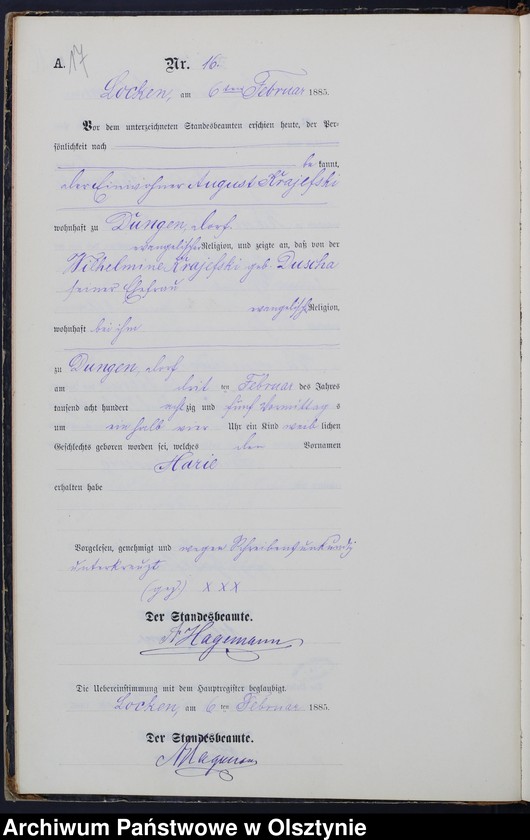 A. 17 Nr. 16.
Locken, am 6ten Februar 1885.
Vor dem unterzeichneten Standesbeamten erschien heute, der Per-
sönlichkeit nach
bekannt,
der Einwohner August Krajefski
wohnhaft zu Dungen, dorf.
evangelischer Religion, und zeigte an, daß von der
Wilhelmine Krajefski geb. Duscha
seiner Ehefrau
evangelischer Religion,
wohnhaft bei ihm
zu Dungen, dorf
am drit ten Februar des Jahres
tausend acht hundert achtzig und fünf Vormittags
um halb vier Uhr ein Kind weiblichen
Geschlechts geboren worden sei, welches den Vornamen
Marie
erhalten habe
Vorgelesen, genehmigt und wegen Schreibensunkunde
unterkreuzt
(gez) X X X
Der Standesbeamte.
A Hagemann
Die Uebereinstimmung mit dem Hauptregister beglaubigt.
Locken, am 6ten Februar 1885.
Der Standesbeamte.
A Hagemann
Archiwum Państwowe w Olsztynie